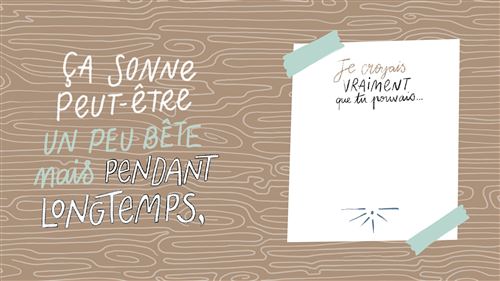 ÇA SONNE
PEUT-ÊTRE
UN PEU BÊTE
mais PENDANT
LONGTEMPS,
Je croyais
VRAIMENT
que tu pouvais...